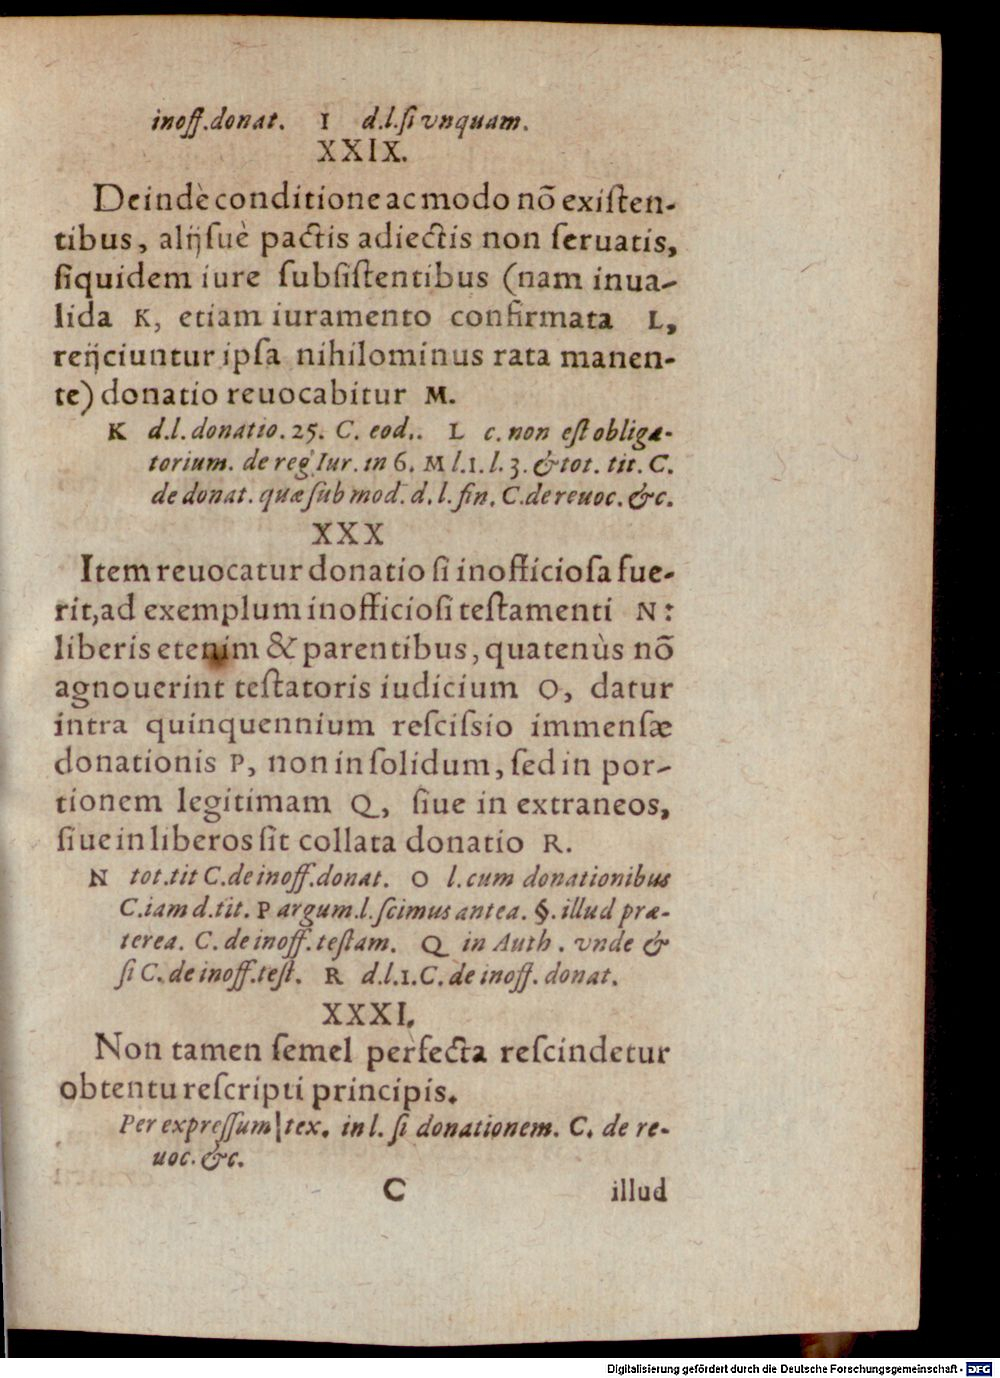 inoff.donat. I d.l.ſi vnquam.
XXIX.
Deindè conditione ac modo nõ exiſten-
tibus, alijſuè pactis adiectis non ſeruatis,
ſiquidem iure ſubſiſtentibus (nam inua-
lida K, etiam iuramento confirmata L,
reijciuntur ipſa nihilominus rata manen-
te) donatio reuocabitur M.
K d.l. donatio. 25. C. eod.. L c. non eſt obliga-
torium. de reg Iur. in 6. M l.1. l. 3. & tot. tit. C.
de donat. quæ ſub mod. d. l. fin. C. de reuoc. &c.
XXX
Item reuocatur donatio ſi inofficioſa fue-
rit, ad exemplum inofficioſi teſtamenti N:
liberis etenim & parentibus, quatenùs nõ
agnouerint teſtatoris iudicium O, datur
intra quinquennium reſciſsio immenſæ
donationis P, non in ſolidum, ſed in por-
tionem legitimam Q, ſiue in extraneos,
ſiue in liberos ſit collata donatio R.
N tot.tit C.de inoff.donat. O l.cum donationibus
C.iam d.tit. P argum.l.ſcimus antea. §. illud præ-
terea. C. de inoff. teſtam. Q in Auth. vnde &
ſi C. de inoff.teſt. R d.l.1.C. de inoff. donat.
XXXI.
Non tamen ſemel perfecta reſcindetur
obtentu reſcripti principis.
Per expreſſum tex. in l. ſi donationem. C. de re-
uoc. &c.
C illud
Digitalisierung gefördert durch die Deutsche Forschungsgemeinschaft - DFG